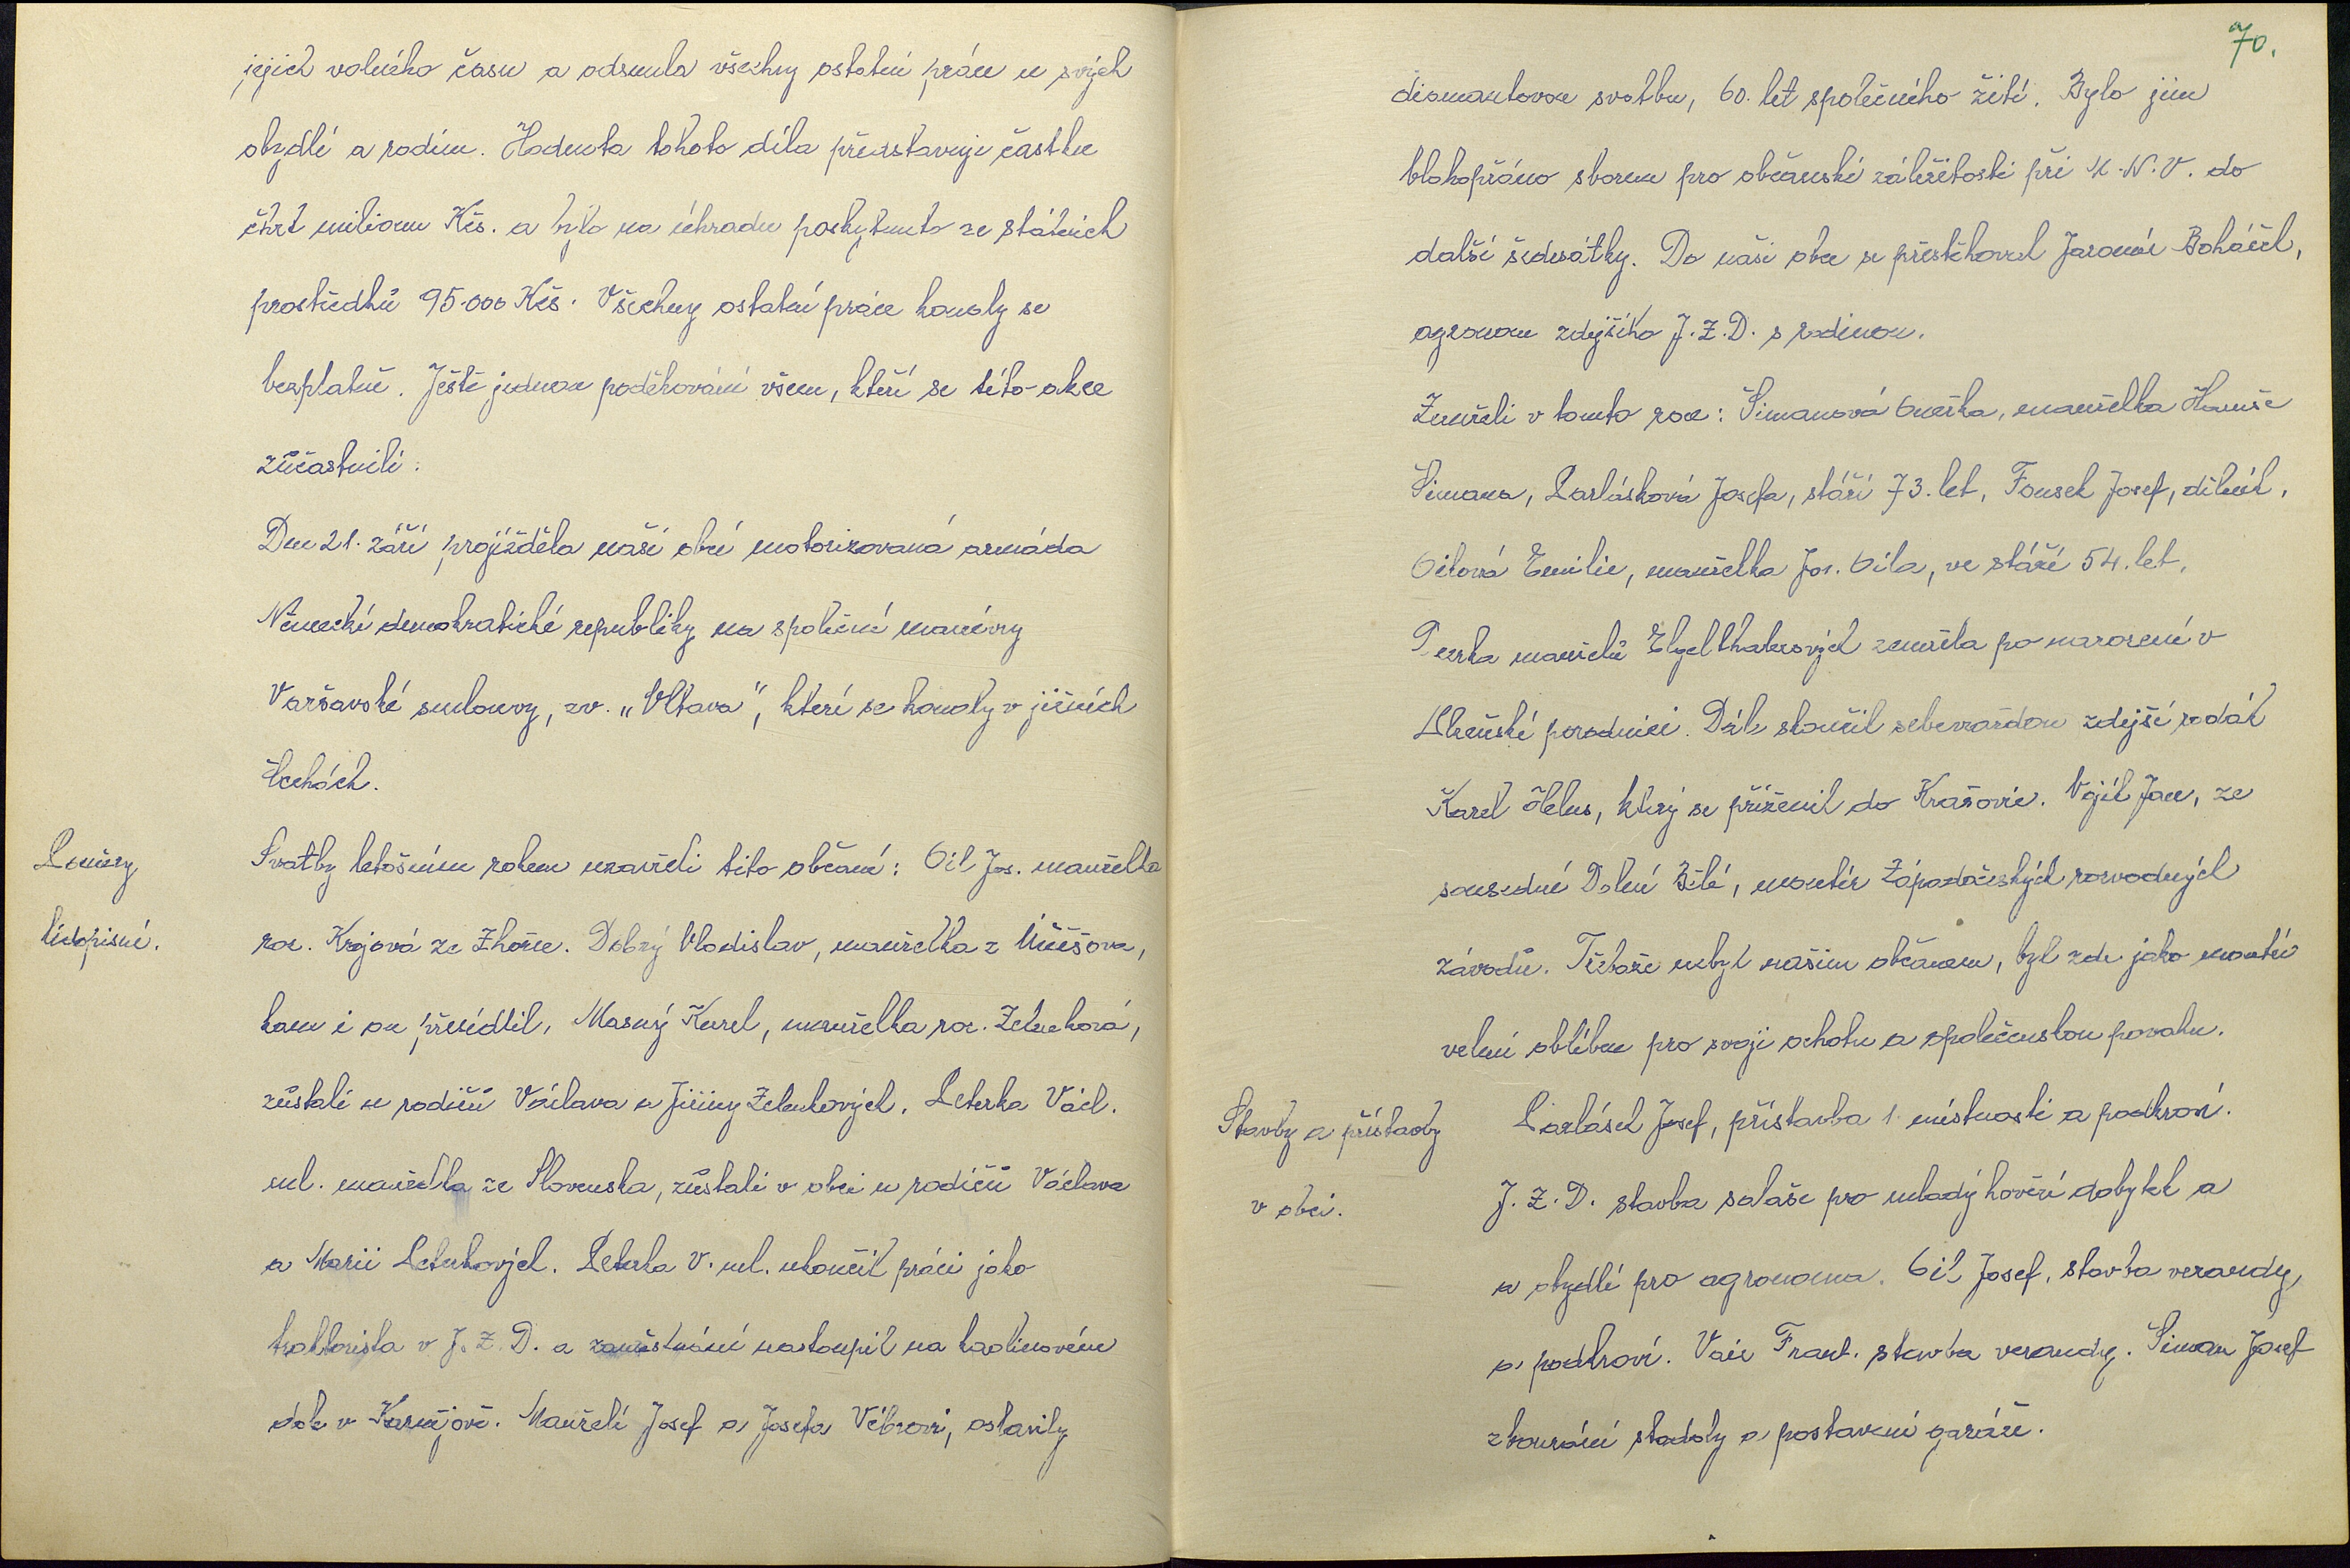 jejich volného času a odsunula všechny ostatní práce u svých
obydlí a rodin. Hodnota tohoto díla představuje částku
čtvrt milionu Kčs. a bylo na úhradu poskytnuto ze státních
prostředků 95.000 Kčs. Všechny ostatní práce konaly se
bezplatně. Ještě jednou poděkování všem, kteří se této akce
zúčastnili.
Dne 21. září projížděla naší obcí motorizovaná armáda
Německé demokratické republiky na společné manévry
Varšavské smlouvy, zv. „Vltava", které se konaly v jižních
Čechách.
Poměry
lidopisné.
Svatby letošním rokem uzavřeli tito občané: Cil Jos. manželka
roz. Krojová ze Zhořce. Dobrý Vladislav, manželka z Úněšova,
kam i on přesídlil, Masný Karel, manželka roz. Zelenková,
zůstali u rodičů Václava a Jiřiny Zelenkových. Peterka Václ.
ml. manželka ze Slovenska, zůstali v obci u rodičů Václava
a Marii Peterkových. Peterka V. ml. ukončil práci jako
traktorista v J.Z.D. a zaměstnání nastoupil na kaolinovém
dole v Kaznějově. Manželé Josef a Josefa Vébrovi, oslavily
70.
diamantovou svatbu, 60. let společného žití. Bylo jim
blahopřáno sborem pro občanské záležitosti při M.N.V. do
další šedesátky. Do naší obce se přestěhoval Jaromír Boháček,
agronom zdejšího J.Z.D. s rodinou.
Zemřeli v tomto roce: Šimanová Anežka, manželka Hanuše
Šimana, Parlásková Josefa, stáří 73. let, Fousek Josef, dělník,
Cilová Emilie, manželka Jos. Cila, ve stáří 54. let,
Dcerka manželů zemřela po narození v
Plzeňské porodnici. Dále skončil sebevraždou zdejší rodák
Karel Helus, který se přiženil do Krašovic. Vojík Jan, ze
sousedné Dolní Bělé, montér Západočeských rozvodných
závodů. Třebaže nebyl našim občanem, byl zde jako montér
velmi oblíben pro svoji ochotu a společenskou povahu.
Stavby a přístavby
v obci.
Parlásek Josef, přístavba 1 místnosti a podkroví.
J.Z.D. stavba salaše pro mladý hovězí dobytek a
a obydlí pro agronoma. Cil Josef, stavba verandy,
a podkroví. Vaic Frant. stavba verandy. Šiman Josef
zbourání stodoly a postavení garáže.